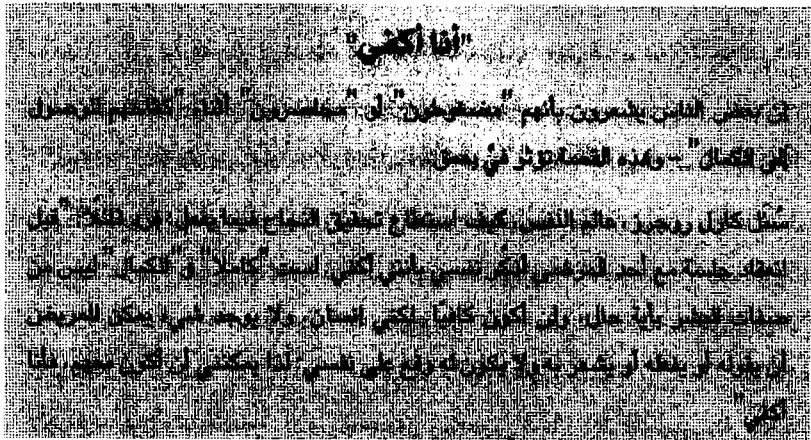 "أنا أكفي"
إن بعض الناس يشعرون بأنهم "مضغوطون" أو "محاصرون" أثناء "كفاحهم للوصول
إلى الكمال" – وهذه القصة تؤثر فيَّ بعمق.
سُئل كارل روجرز، عالم النفس، كيف استطاع تحقيق النجاح فيما يفعل، فرد قائلاً: "قبل
انعقاد جلسة مع أحد المرضى أُذكِّر نفسي بأنني أكفي. لست "كاملاً" فـ"الكمال" ليس من
صفات البشر بأية حال، ولن أكون كافيًا ـلكني إنسان، ولا يوجد شيء يمكن للمريض
أن يقوله أو يفعله أو يشعر به ولا يكون له وقع على نفسي. لذا يمكنني أن أكون معهم، فأنا
أكفي"